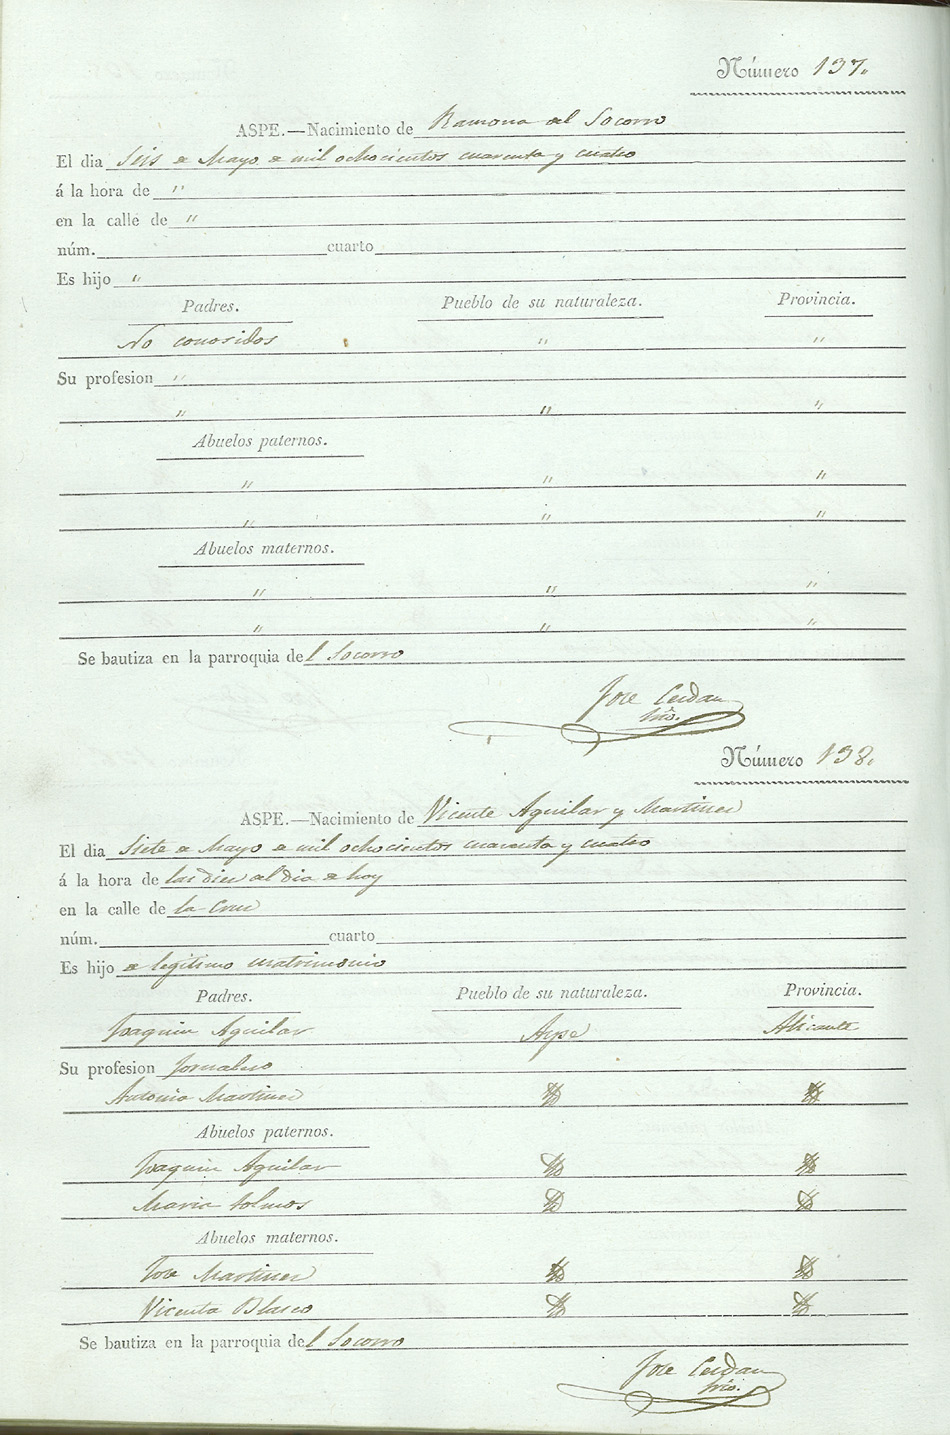 Número 137.
ASPE.—Nacimiento de Ramona del Socorro
El dia Seis de Mayo de mil ochocientos cuarenta y cuatro
á la hora de "
en la calle de "
núm. cuarto
Es hijo "
Padres. Pueblo de su naturaleza. Provincia.
No conosidos " "
Su profesion "
" " "
Abuelos paternos.
" " "
" " "
Abuelos maternos.
" " "
" " "
Se bautiza en la parroquia del Socorro
Jose Cerdan
Srio.
Número 138.
ASPE.—Nacimiento de Vicente Aguilar y Martinez
El dia Siete de Mayo de mil ochocientos cuarenta y cuatro
á la hora de las diez del dia de hoy
en la calle de la Cruz
núm. cuarto
Es hijo de legitimo matrimonio
Padres. Pueblo de su naturaleza. Provincia.
Joaquin Aguilar Aspe Alicante
Su profesion Jornalero
Antonia Martinez
Abuelos paternos.
Joaquin Aguilar
Maria Bolmos
Abuelos maternos.
Jose Martinez
Vicenta Blasco
Se bautiza en la parroquia del Socorro
Jose Cerdan
Srio.